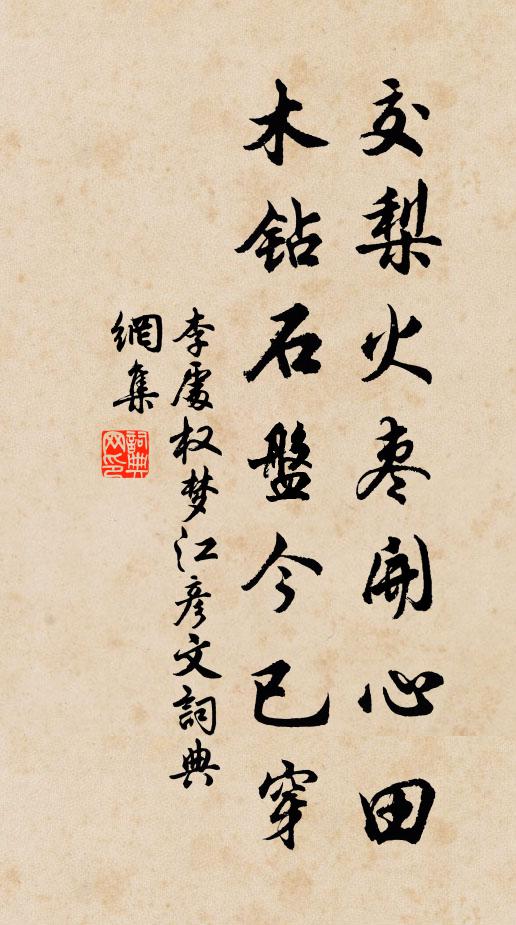 交梨火枣開心田
木钻石盤今已穿
李處权梦江彦文詞典
網集
詞典网印